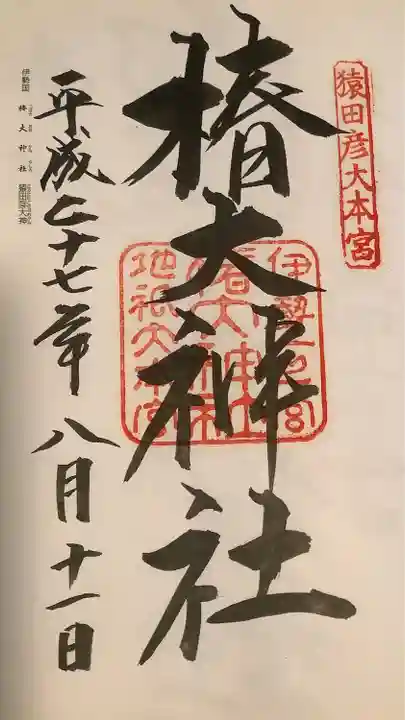 猿田彦大本宮
椿大神社
伊勢一之宮
椿大神社
地祇大本宮
平成二十七年八月十一日
伊勢国 椿大神社 猿田彦大神